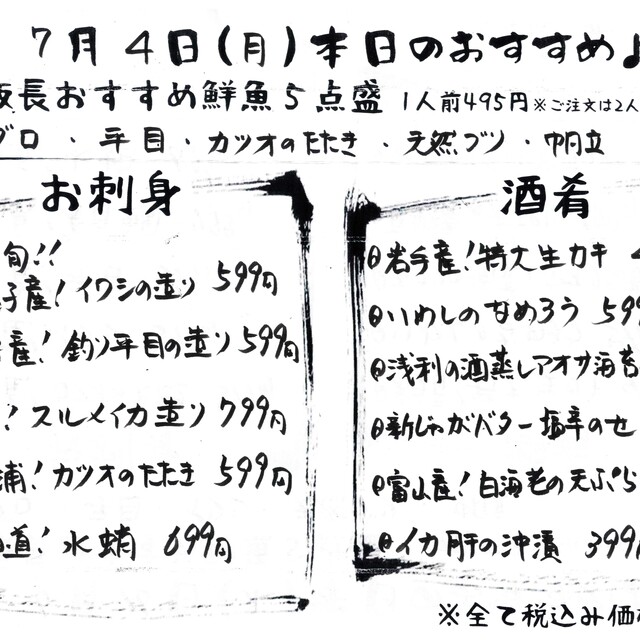 7月4日(月)本日のおすすめ♪
板長おすすめ鮮魚5点盛 1人前495円 ※ご注文は2人
グロ・平目・カツオのたたき・天然ブリ・帆立
お刺身
旬!!
子産!イワシの造り 599円
産!釣り平目の造り 599円
!スルメイカ造り 799円
浦!カツオのたたき 599円
道!水蛸 699円
酒肴
岩手産!特大生カキ 4
いわしのなめろう 599
浅利の酒蒸しアオサ海苔
新じゃがバター塩辛のせ
富山産!白海老の天ぷら
イカ肝の沖漬 399円
※全て税込み価格